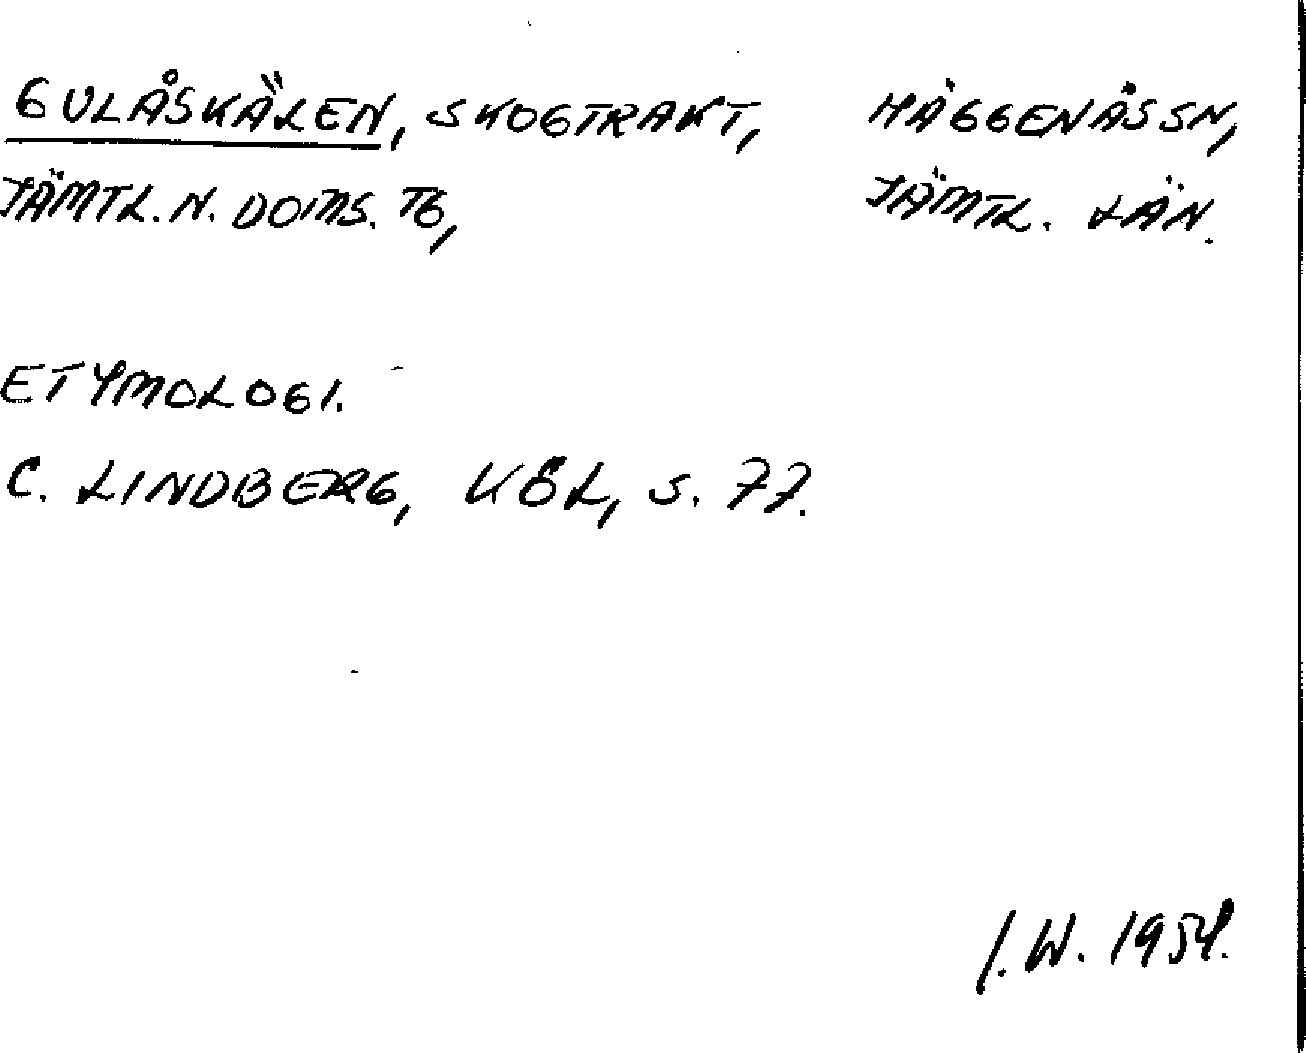 GULÅSKÄLEN, SKOGTRAKT, HÄGGENÅSSN,
JÄMTL. N. DOMS. TG, JÄMTL. LÄN.
ETYMOLOGI.
C. LINDBERG, KÖL, S. 77.
I.W. 1954.